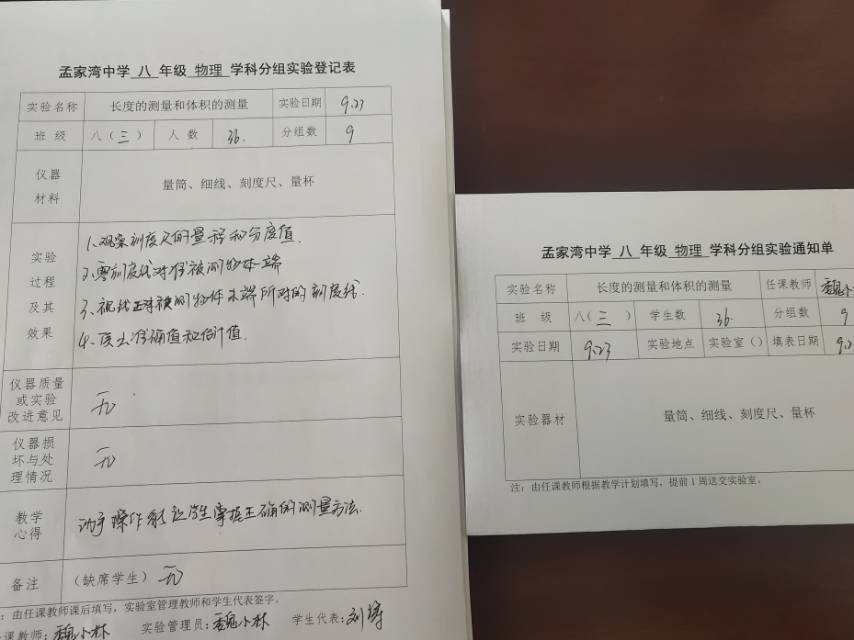 孟家湾中学 八 年级 物理 学科分组实验登记表
实验名称 长度的测量和体积的测量 实验日期 9.23
班 级 八（三） 人 数 36. 分组数 9
仪器
材料
量筒、细线、刻度尺、量杯
实验
过程
及其
效果
1、观察刻度尺的量程和分度值.
2、零刻度线对准被测物体一端
3、视线正对被测物体末端所对的刻度线.
4、读出准确值和估计值.
仪器质量
或实验
改进意见
无
仪器损
坏与处
理情况
无
教学
心得
动手操作能让学生掌握正确的测量方法.
备注 （缺席学生）无
：由任课教师课后填写，实验室管理教师和学生代表签字。
课教师：魏小林 实验管理员：魏小林 学生代表：刘
孟家湾中学 八 年级 物理 学科分组实验通知单
实验名称 长度的测量和体积的测量 任课教师 魏小
班 级 八（三 ） 学生数 36. 分组数 9
实验日期 9.23 实验地点 实验室（） 填表日期 9.
实验器材 量筒、细线、刻度尺、量杯
注：由任课教师根据教学计划填写，提前1周送交实验室。